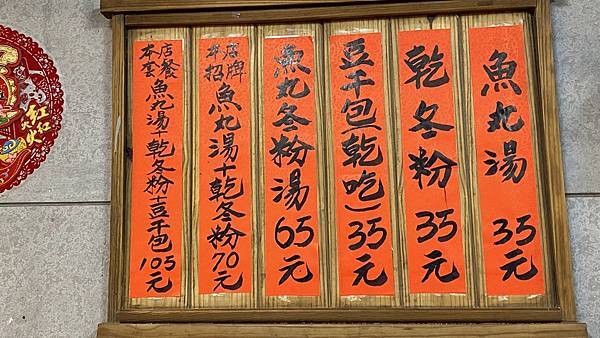 魚丸湯 35元
乾冬粉 35元
豆干包(乾吃)35元
魚丸冬粉湯 65元
本店招牌 魚丸湯+乾冬粉 70元
本店套餐 魚丸湯+乾冬粉+豆干包 105元